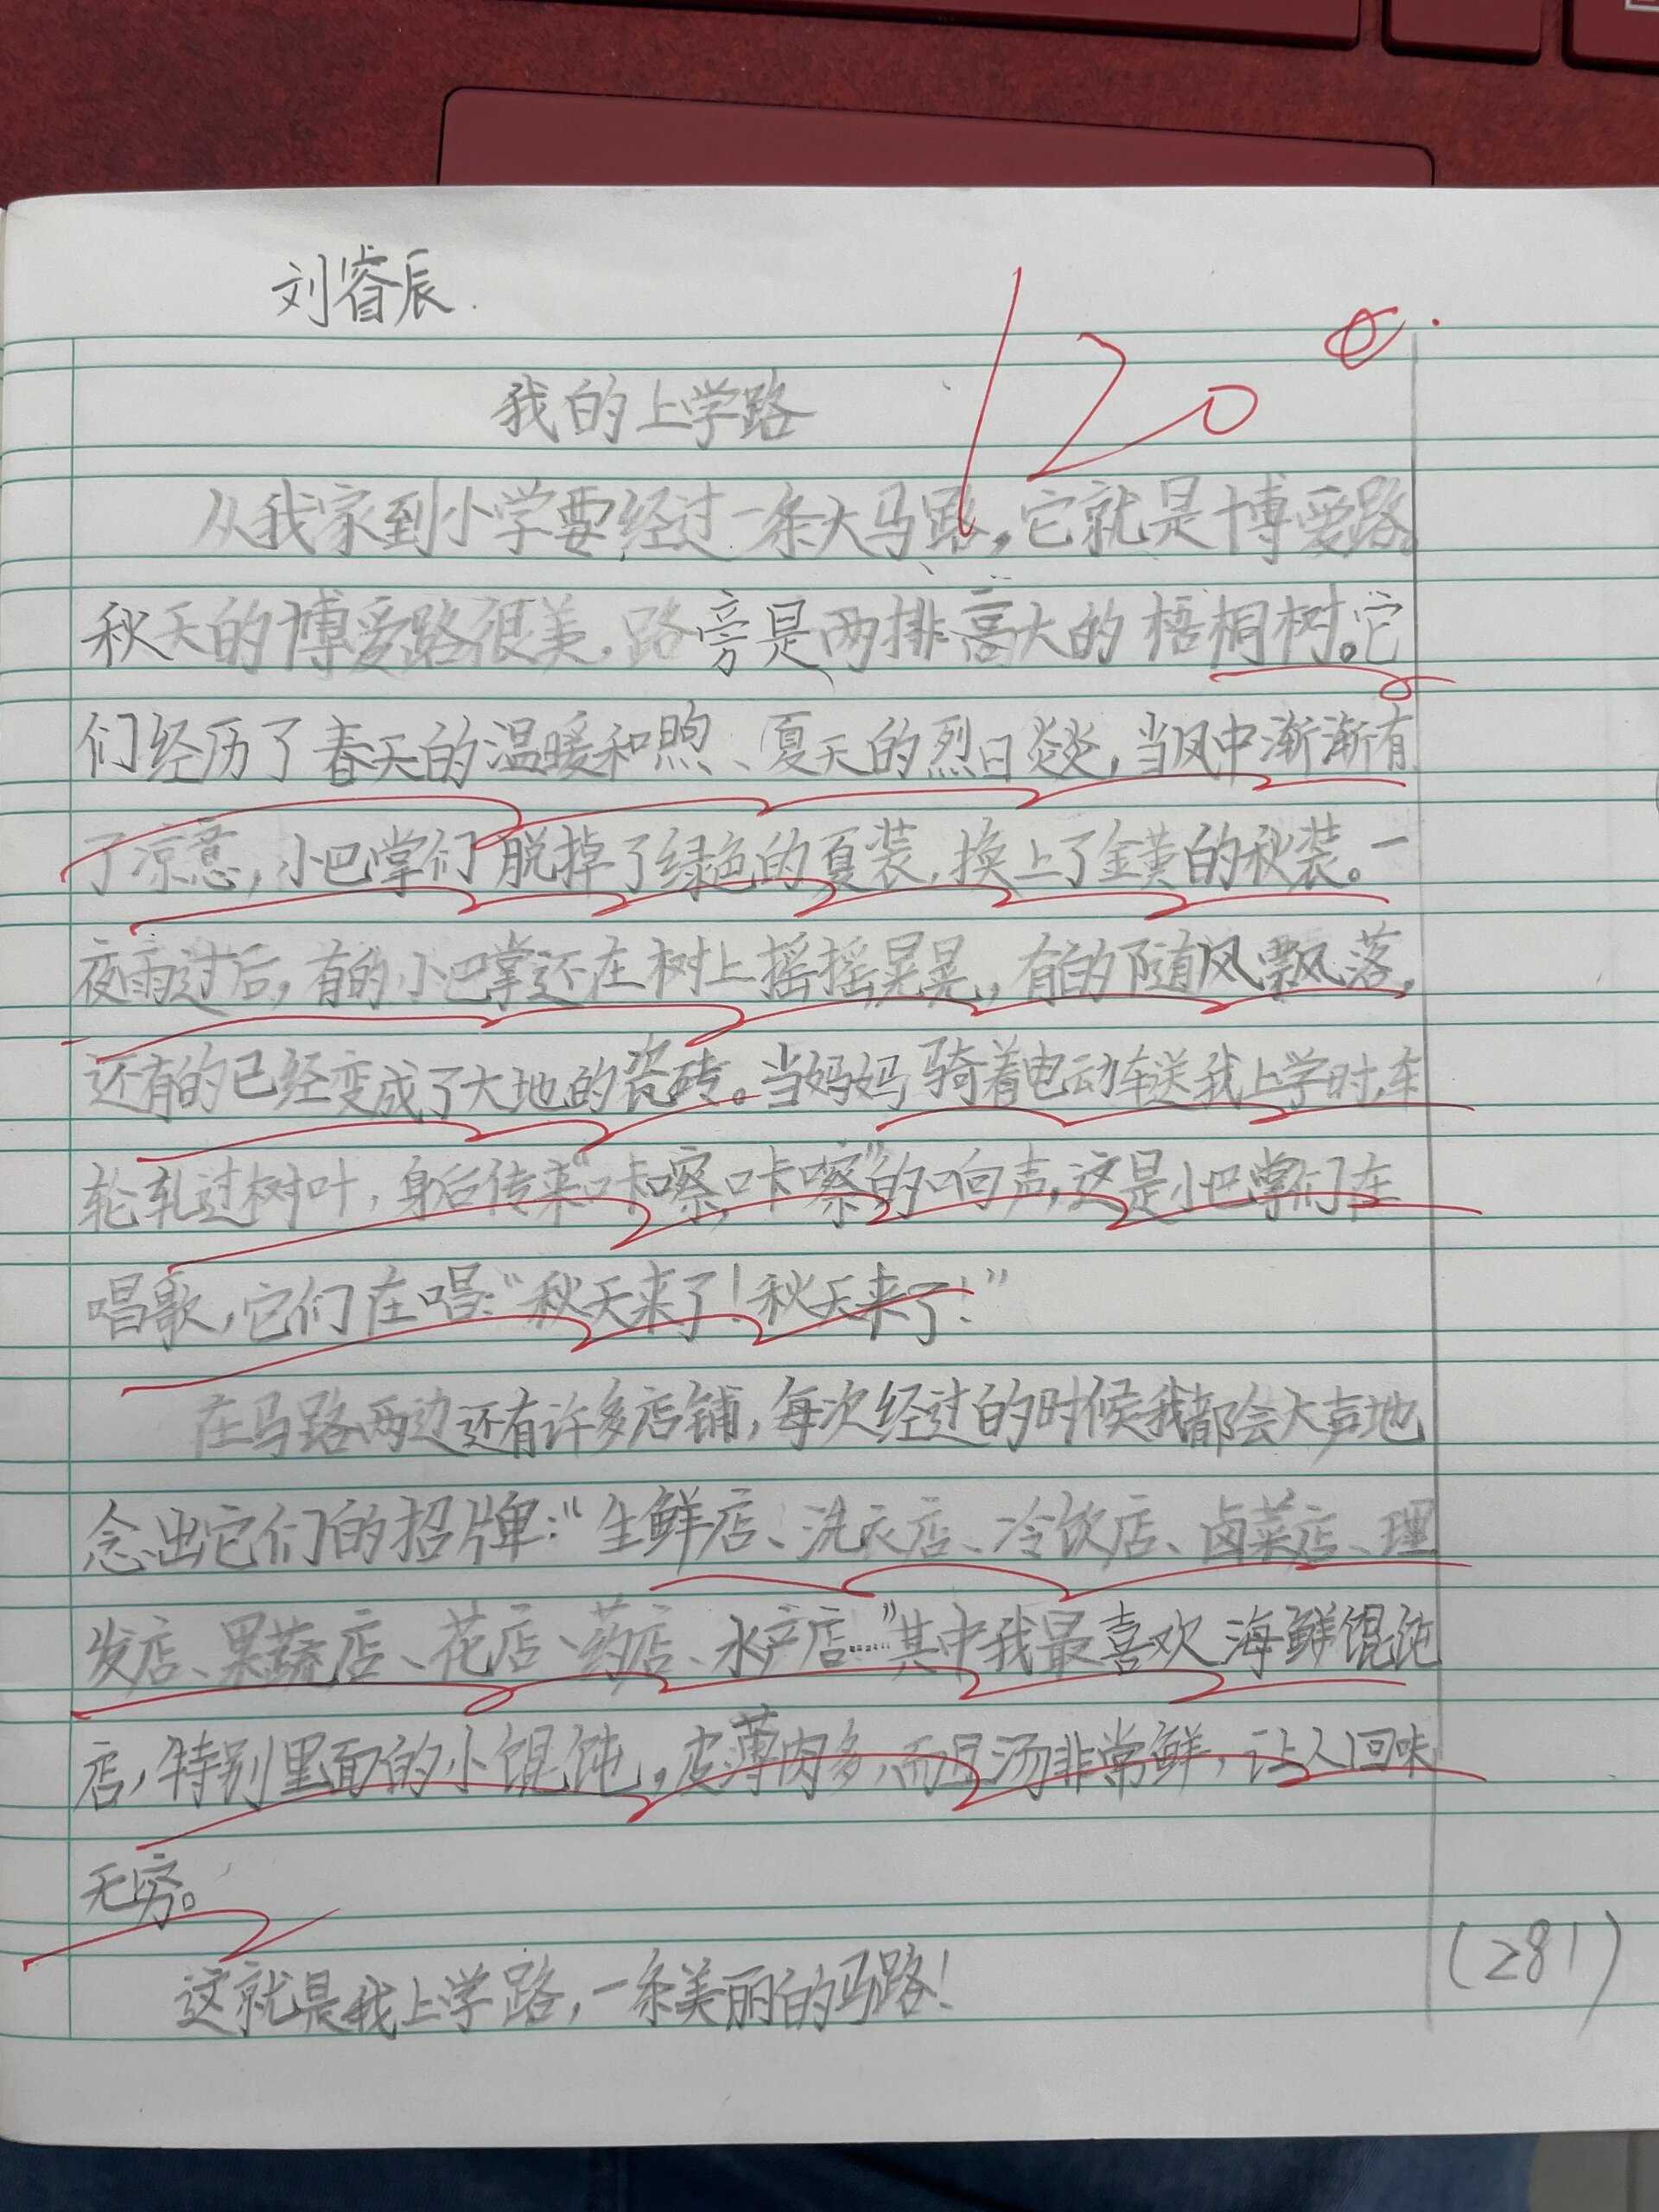 刘睿辰
120
我的上学路
从我家到小学要经过一条大马路,它就是博爱路。
秋天的博爱路很美,路旁是两排高大的梧桐树。它
们经历了春天的温暖和煦、夏天的烈日炎炎,当风中渐渐有
了凉意,小巴掌们脱掉了绿色的夏装,换上了金黄的秋装。一
夜雨过后,有的小巴掌还在树上摇摇晃晃,有的随风飘落,
还有的已经变成了大地的瓷砖。当妈妈骑着电动车送我上学时,车
轮轧过树叶,身后传来“咔嚓,咔嚓”的响声,这是小巴掌们在
唱歌,它们在唱:“秋天来了!秋天来了!”
在马路两边还有许多店铺,每次经过的时候我都会大声地
念出它们的招牌:“生鲜店、洗衣店、冷饮店、卤菜店、理
发店、果蔬店、花店、药店、水产店……”其中我最喜欢海鲜馄饨
店,特别里面的小馄饨,皮薄肉多,而且汤非常鲜,让人回味
无穷。
这就是我上学路,一条美丽的马路!
(281)